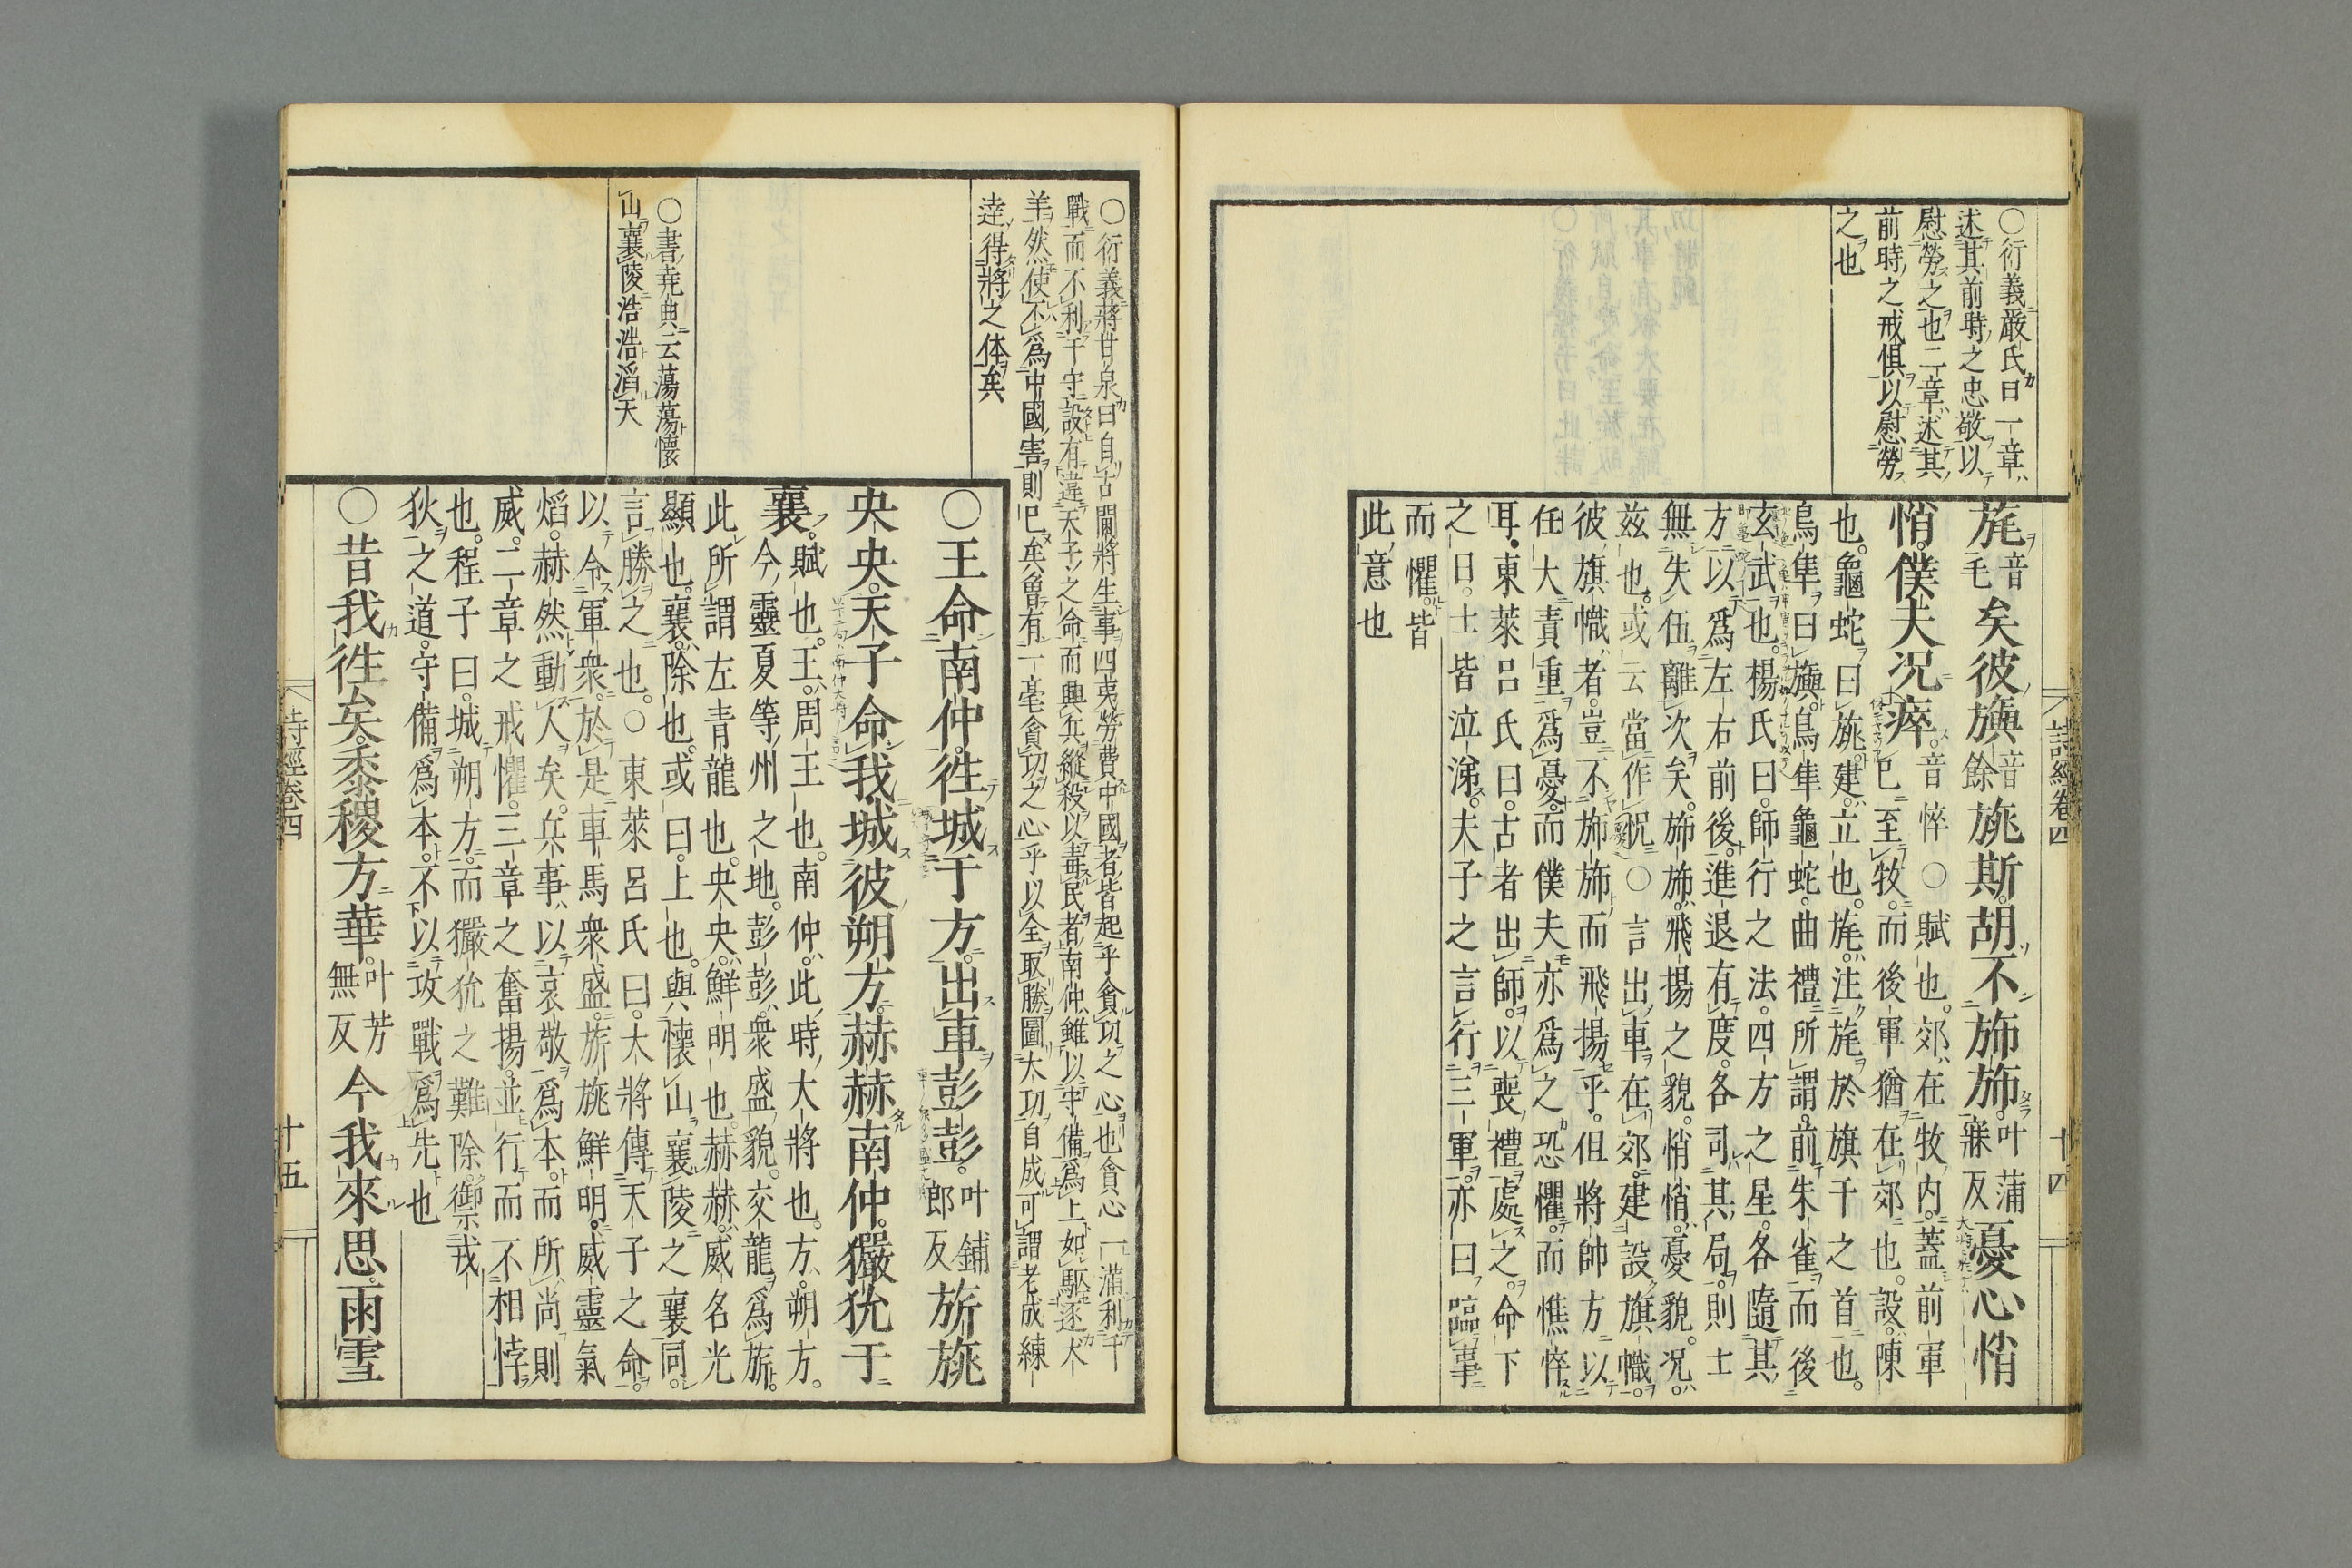 詩經卷四
十四
○衍義嚴氏曰一章
述其前時之忠敬以
慰勞之也二章述其
前時之戒懼以慰勞
之也
旄音毛矣彼旟音餘旐斯胡不斾斾叶蒲寐反憂心悄
悄僕夫況瘁音悴○賦也郊在牧內蓋前軍
已至牧而後軍猶在郊也設陳
也龜蛇曰旐建立也旄注旄於旗干之首也
鳥隼曰旟鳥隼龜蛇曲禮所謂前朱雀而後
玄武也楊氏曰師行之法四方之星各隨其
方以爲左右前後進退有度各司其局則士
無失伍離次矣斾斾飛揚之貌悄悄憂貌況
茲也或云當作怳○言出車在郊建設旗幟
彼旗幟者豈不斾斾而飛揚乎但將帥方以
任大責重爲憂而僕夫亦爲之恐懼而憔悴
耳東萊呂氏曰古者出師以喪禮處之命下
之日士皆泣涕夫子之言行三軍亦曰臨事
而懼皆
此意也
○衍義蔣甘泉曰自古閫將生事四夷勞費中國者皆起乎貪功之心也貪心一滿利干
戰而不利于守設有違天子之命而興兵縱殺以毒民者南仲雖以守備爲上如驅逐犬
羊然使不爲中國害則已矣曾有一毫貪功之心乎以全取勝圖大功自成可謂老成練
達得將之体矣
○王命南仲徃城于方出車彭彭叶鋪郎反旂旐
央央天子命我城彼朔方赫赫南仲玁狁于
襄賦也王周王也南仲此時大將也方朔方
今靈夏等州之地彭彭衆盛貌交龍爲旂
此所謂左青龍也央央鮮明也赫赫威名光
顯也襄除也或曰上也與懷山襄陵之襄同
言勝之也○東萊呂氏曰大將傳天子之命
以令軍衆於是車馬衆盛旂旐鮮明威靈氣
焰赫然動人矣兵事以哀敬爲本而所尚則
威二章之戒懼三章之奮揚並行而不相悖
也程子曰城朔方而玁狁之難除禦戎
狄之道守備爲本不以攻戰爲先也
○書堯典云蕩蕩懷
山襄陵浩浩滔天
○昔我徃矣黍稷方華叶芳無反今我來思雨雪
詩經卷四
十五